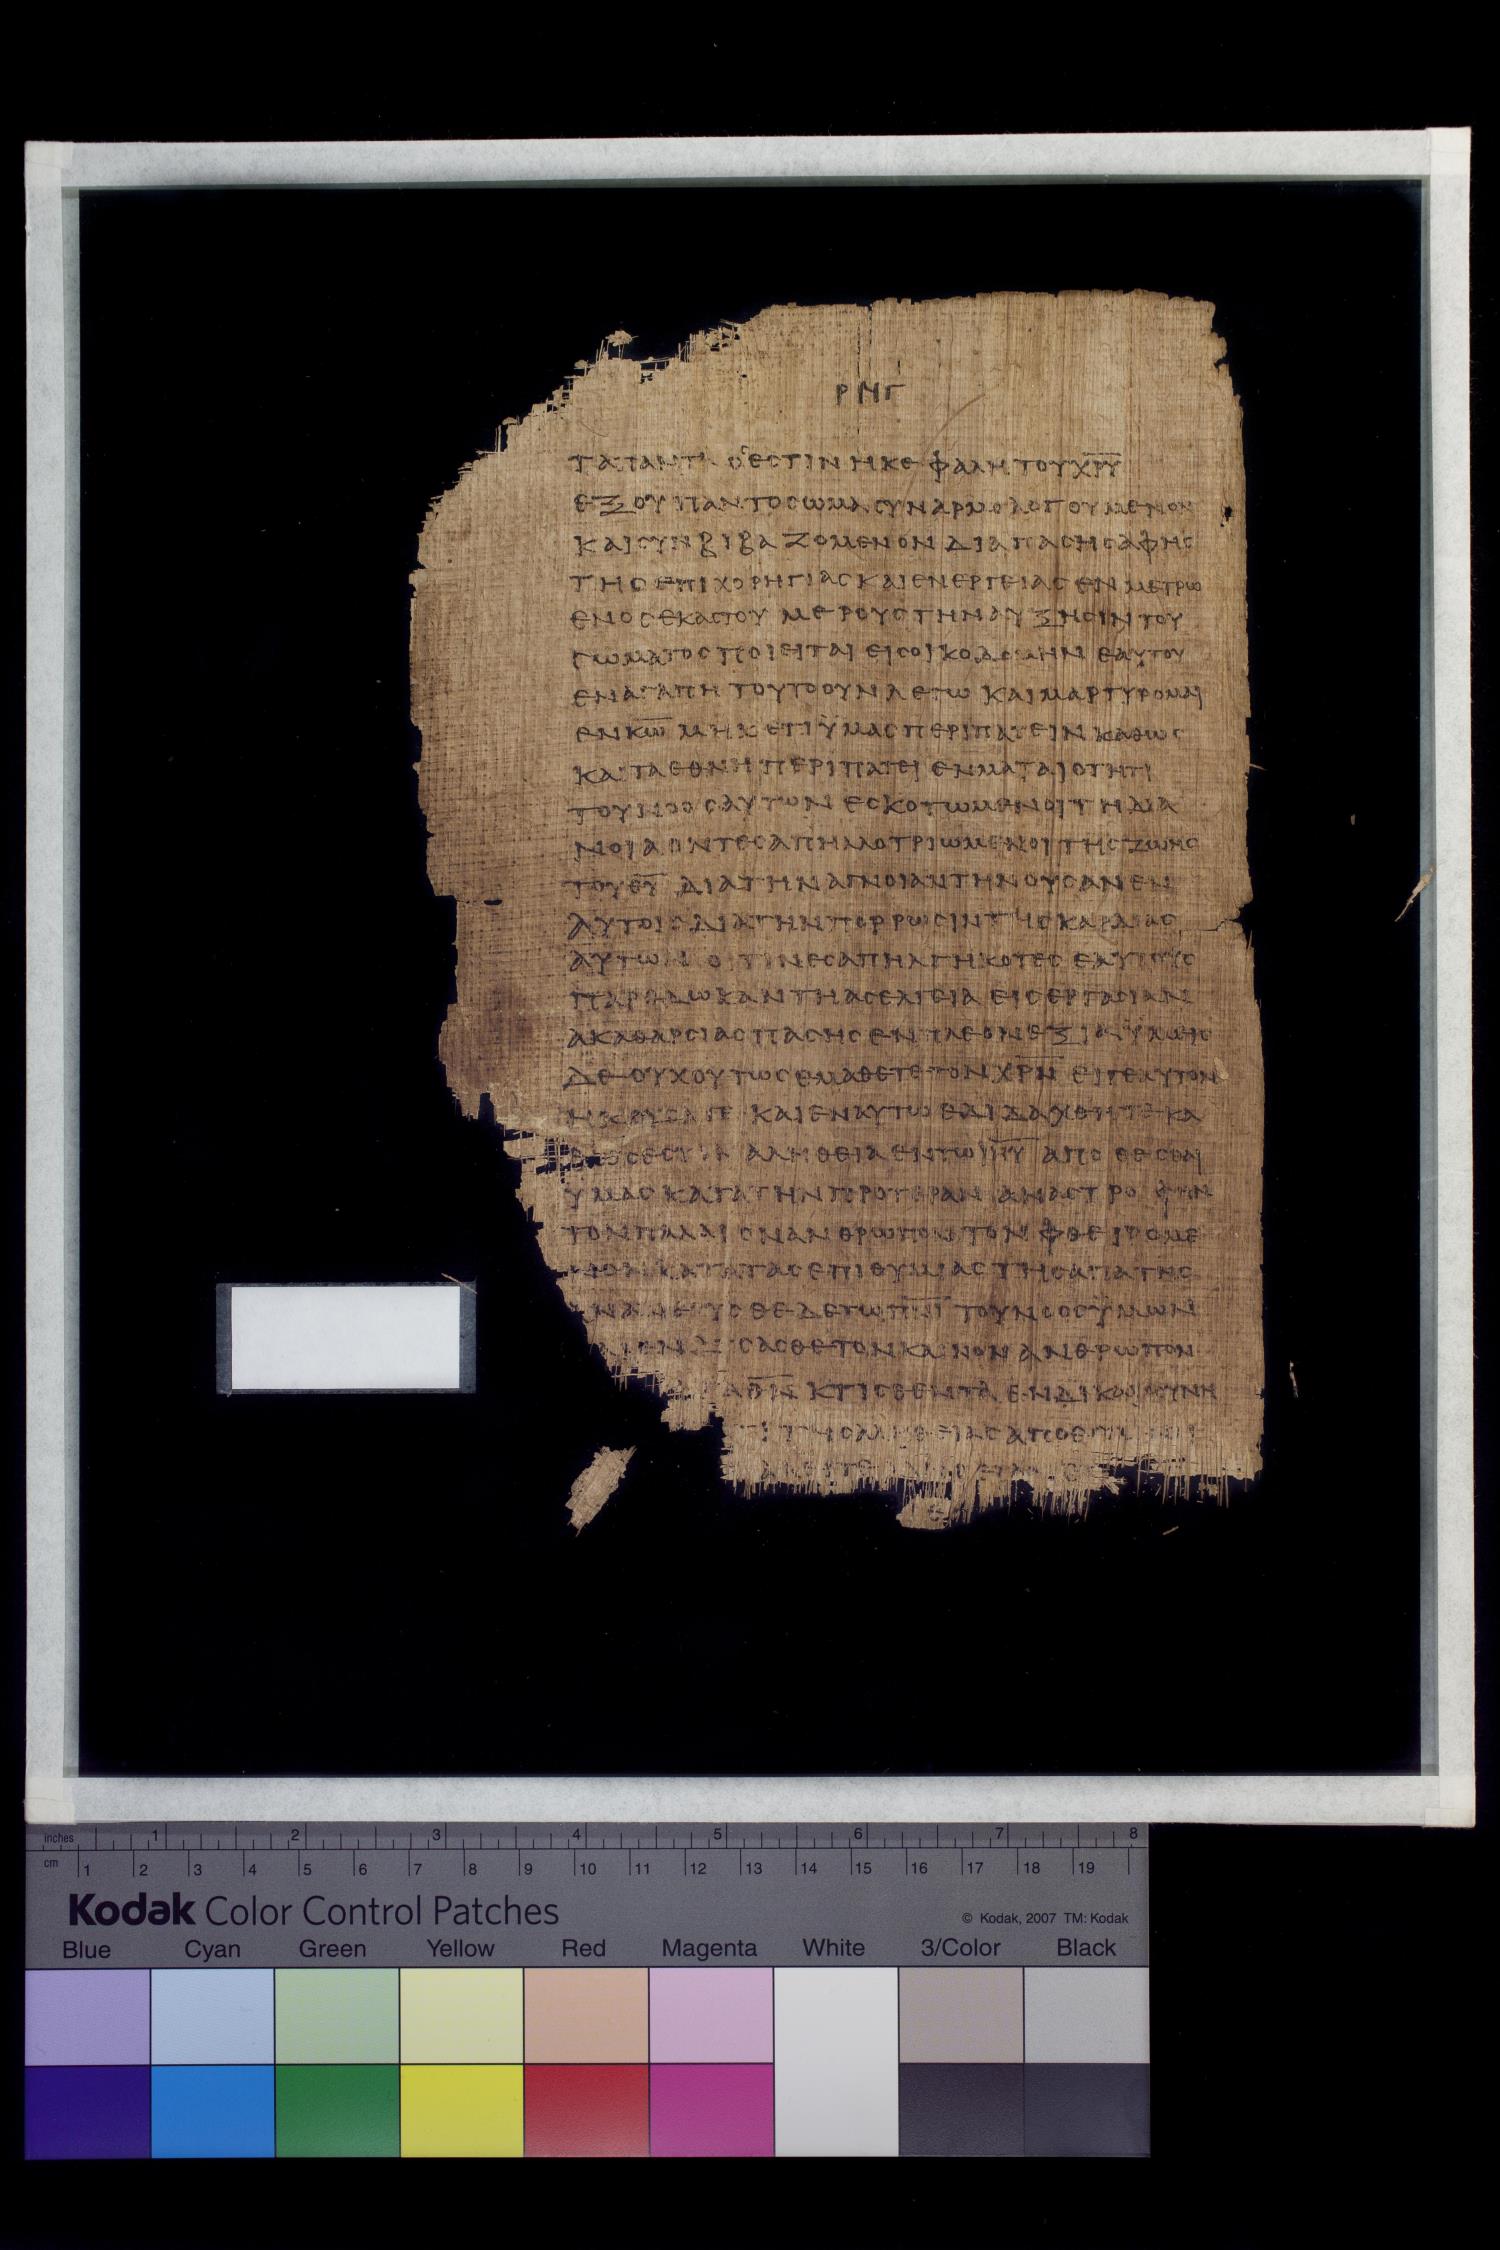 ΡΝΓ
ΤΑ ΠΑΝΤΑ Ο ΕϹΤΙΝ Η ΚΕΦΑΛΗ ΤΟΥ Χ̅Ρ̅Υ̅
ΕΞ ΟΥ ΠΑΝ ΤΟ ϹΩΜΑ ϹΥΝΑΡΜΟΛΟΓΟΥΜΕΝΟΝ
ΚΑΙ ϹΥΝΒΙΒΑΖΟΜΕΝΟΝ ΔΙΑ ΠΑϹΗϹ ΑΦΗϹ
ΤΗϹ ΕΠΙΧΟΡΗΓΙΑϹ ΚΑΙ ΕΝΕΡΓΕΙΑϹ ΕΝ ΜΕΤΡΩ
ΕΝΟϹ ΕΚΑϹΤΟΥ ΜΕΡΟΥϹ ΤΗΝ ΑΥΞΗϹΙΝ ΤΟΥ
ϹΩΜΑΤΟϹ ΠΟΙΕΙΤΑΙ ΕΙϹ ΟΙΚΟΔΟΜΗΝ ΕΑΥΤΟΥ
ΕΝ ΑΓΑΠΗ ΤΟΥΤΟ ΟΥΝ ΛΕΓΩ ΚΑΙ ΜΑΡΤΥΡΟΜΑΙ
ΕΝ Κ̅Ω̅ ΜΗΚΕΤΙ ΫΜΑϹ ΠΕΡΙΠΑΤΕΙΝ ΚΑΘΩϹ
ΚΑΙ ΤΑ ΕΘΝΗ ΠΕΡΙΠΑΤΕΙ ΕΝ ΜΑΤΑΙΟΤΗΤΙ
ΤΟΥ ΝΟΟϹ ΑΥΤΩΝ ΕϹΚΟΤΩΜΕΝΟΙ ΤΗ ΔΙΑ
ΝΟΙΑ ΟΝΤΕϹ ΑΠΗΛΛΟΤΡΙΩΜΕΝΟΙ ΤΗϹ ΖΩΗϹ
ΤΟΥ Θ̅Υ̅ ΔΙΑ ΤΗΝ ΑΓΝΟΙΑΝ ΤΗΝ ΟΥϹΑΝ ΕΝ
ΑΥΤΟΙϹ ΔΙΑ ΤΗΝ ΠΟΡΡΩϹΙΝ ΤΗϹ ΚΑΡΔΙΑϹ
ΑΥΤΩΝ ΟΙΤΙΝΕϹ ΑΠΗΛΓΗΚΟΤΕϹ ΕΑΥΤΟΥϹ
ΠΑΡΕΔΩΚΑΝ ΤΗ ΑϹΕΛΓΕΙΑ ΕΙϹ ΕΡΓΑϹΙΑΝ
ΑΚΑΘΑΡϹΙΑϹ ΠΑϹΗϹ ΕΝ ΠΛΕΟΝΕΞΙΑ ΫΜΕΙϹ
ΔΕ ΟΥΧ ΟΥΤΩϹ ΕΜΑΘΕΤΕ ΤΟΝ Χ̅Ρ̅Ν̅ ΕΙΓΕ ΑΥΤΟΝ
ΗΚΟΥϹΑΤΕ ΚΑΙ ΕΝ ΑΥΤΩ ΕΔΙΔΑΧΘΗΤΕ ΚΑ
ΘΩϹ ΕϹΤΙΝ ΑΛΗΘΕΙΑ ΕΝ ΤΩ Ι̅Η̅Υ̅ ΑΠΟΘΕϹΘΑΙ
ΥΜΑϹ ΚΑΤΑ ΤΗΝ ΠΡΟΤΕΡΑΝ ΑΝΑϹΤΡΟΦΗΝ
ΤΟΝ ΠΑΛΑΙΟΝ ΑΝΘΡΩΠΟΝ ΤΟΝ ΦΘΕΙΡΟΜΕ
ΝΟΝ ΚΑΤΑ ΤΑϹ ΕΠΙΘΥΜΙΑϹ ΤΗϹ ΑΠΑΤΗϹ
ΑΝΑΝΕΟΥϹΘΕ ΔΕ ΤΩ Π̅Ν̅Ι̅ ΤΟΥ ΝΟΟϹ ΫΜΩΝ
ΕΝΔΥϹΑϹΘΕ ΤΟΝ ΚΑΙΝΟΝ ΑΝΘΡΩΠΟΝ
ΚΤΙϹΘΕΝΤΑ ΕΝ ΔΙΚΑΙΟϹΥΝΗ
ΑΛΗΘΕΙΑϹ